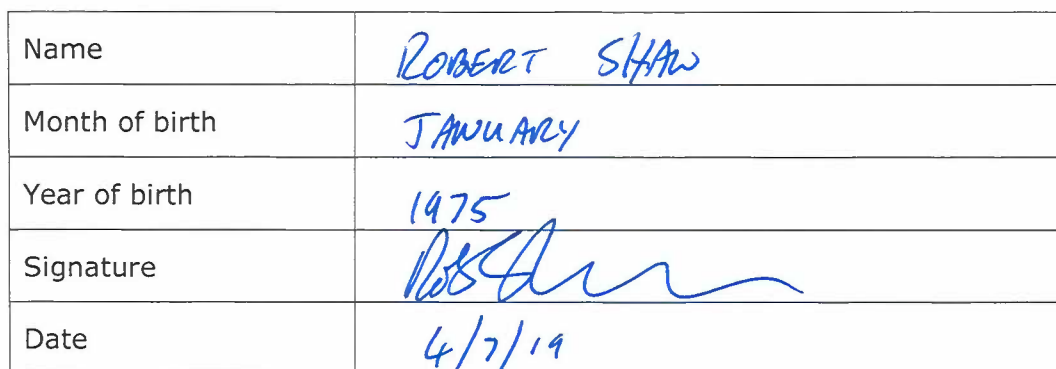 Name ROBERT SHAW
Month of birth JANUARY
Year of birth 1975
Signature Rob Sh
Date 4/7/19